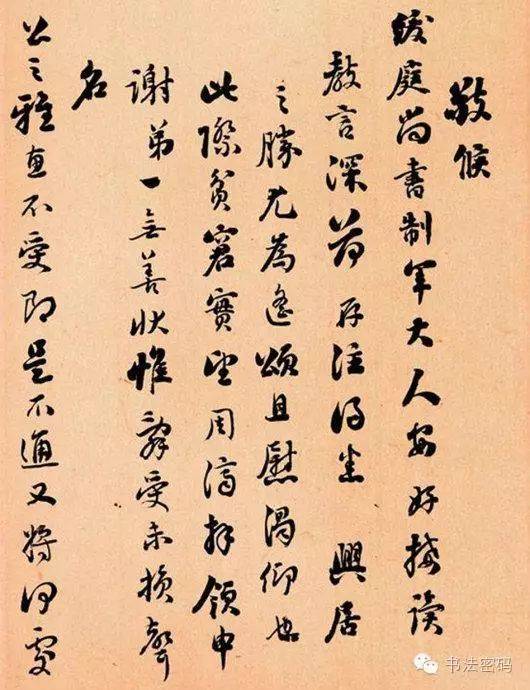 敬候
庭尚書制军大人安好接读
教言深荷存注得悉 興居
之勝尤為遙頌且慰渴仰也
此際貧窘實望周濟拜領申
謝弟一無善狀惟辭受未損聲
名
公之雅直不受即是不通又将何
书法密码